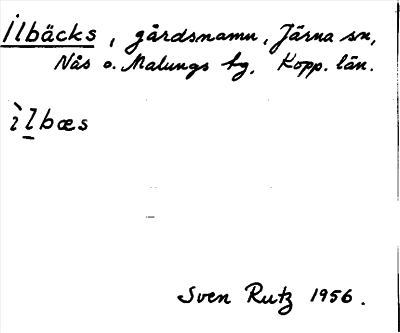 Ilbäcks, gårdsnamn, Järna sn,
Nås o. Malungs tg, Kopp. län.
ìlbæs
Sven Rutz 1956.